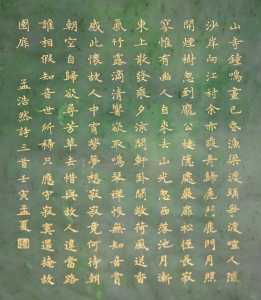 山寺鐘鳴晝已昏漁梁渡頭爭渡喧人隨
沙岸向江村余亦乘舟歸鹿門鹿門月照
開煙樹忽到龐公棲隱處巖扉松徑長寂
寥惟有幽人自來去山光忽西落池月漸
東上散發乘夕涼開軒臥閑敞荷風送香
氣竹露滴清響欲取鳴琴彈恨無知音賞
感此懷故人中宵勞夢想寂寂竟何待朝
朝空自歸欲尋芳草去惜與故人違當路
誰相假知音世所稀只應守寂寞還掩故
園扉 孟浩然詩三首壬寅孟夏